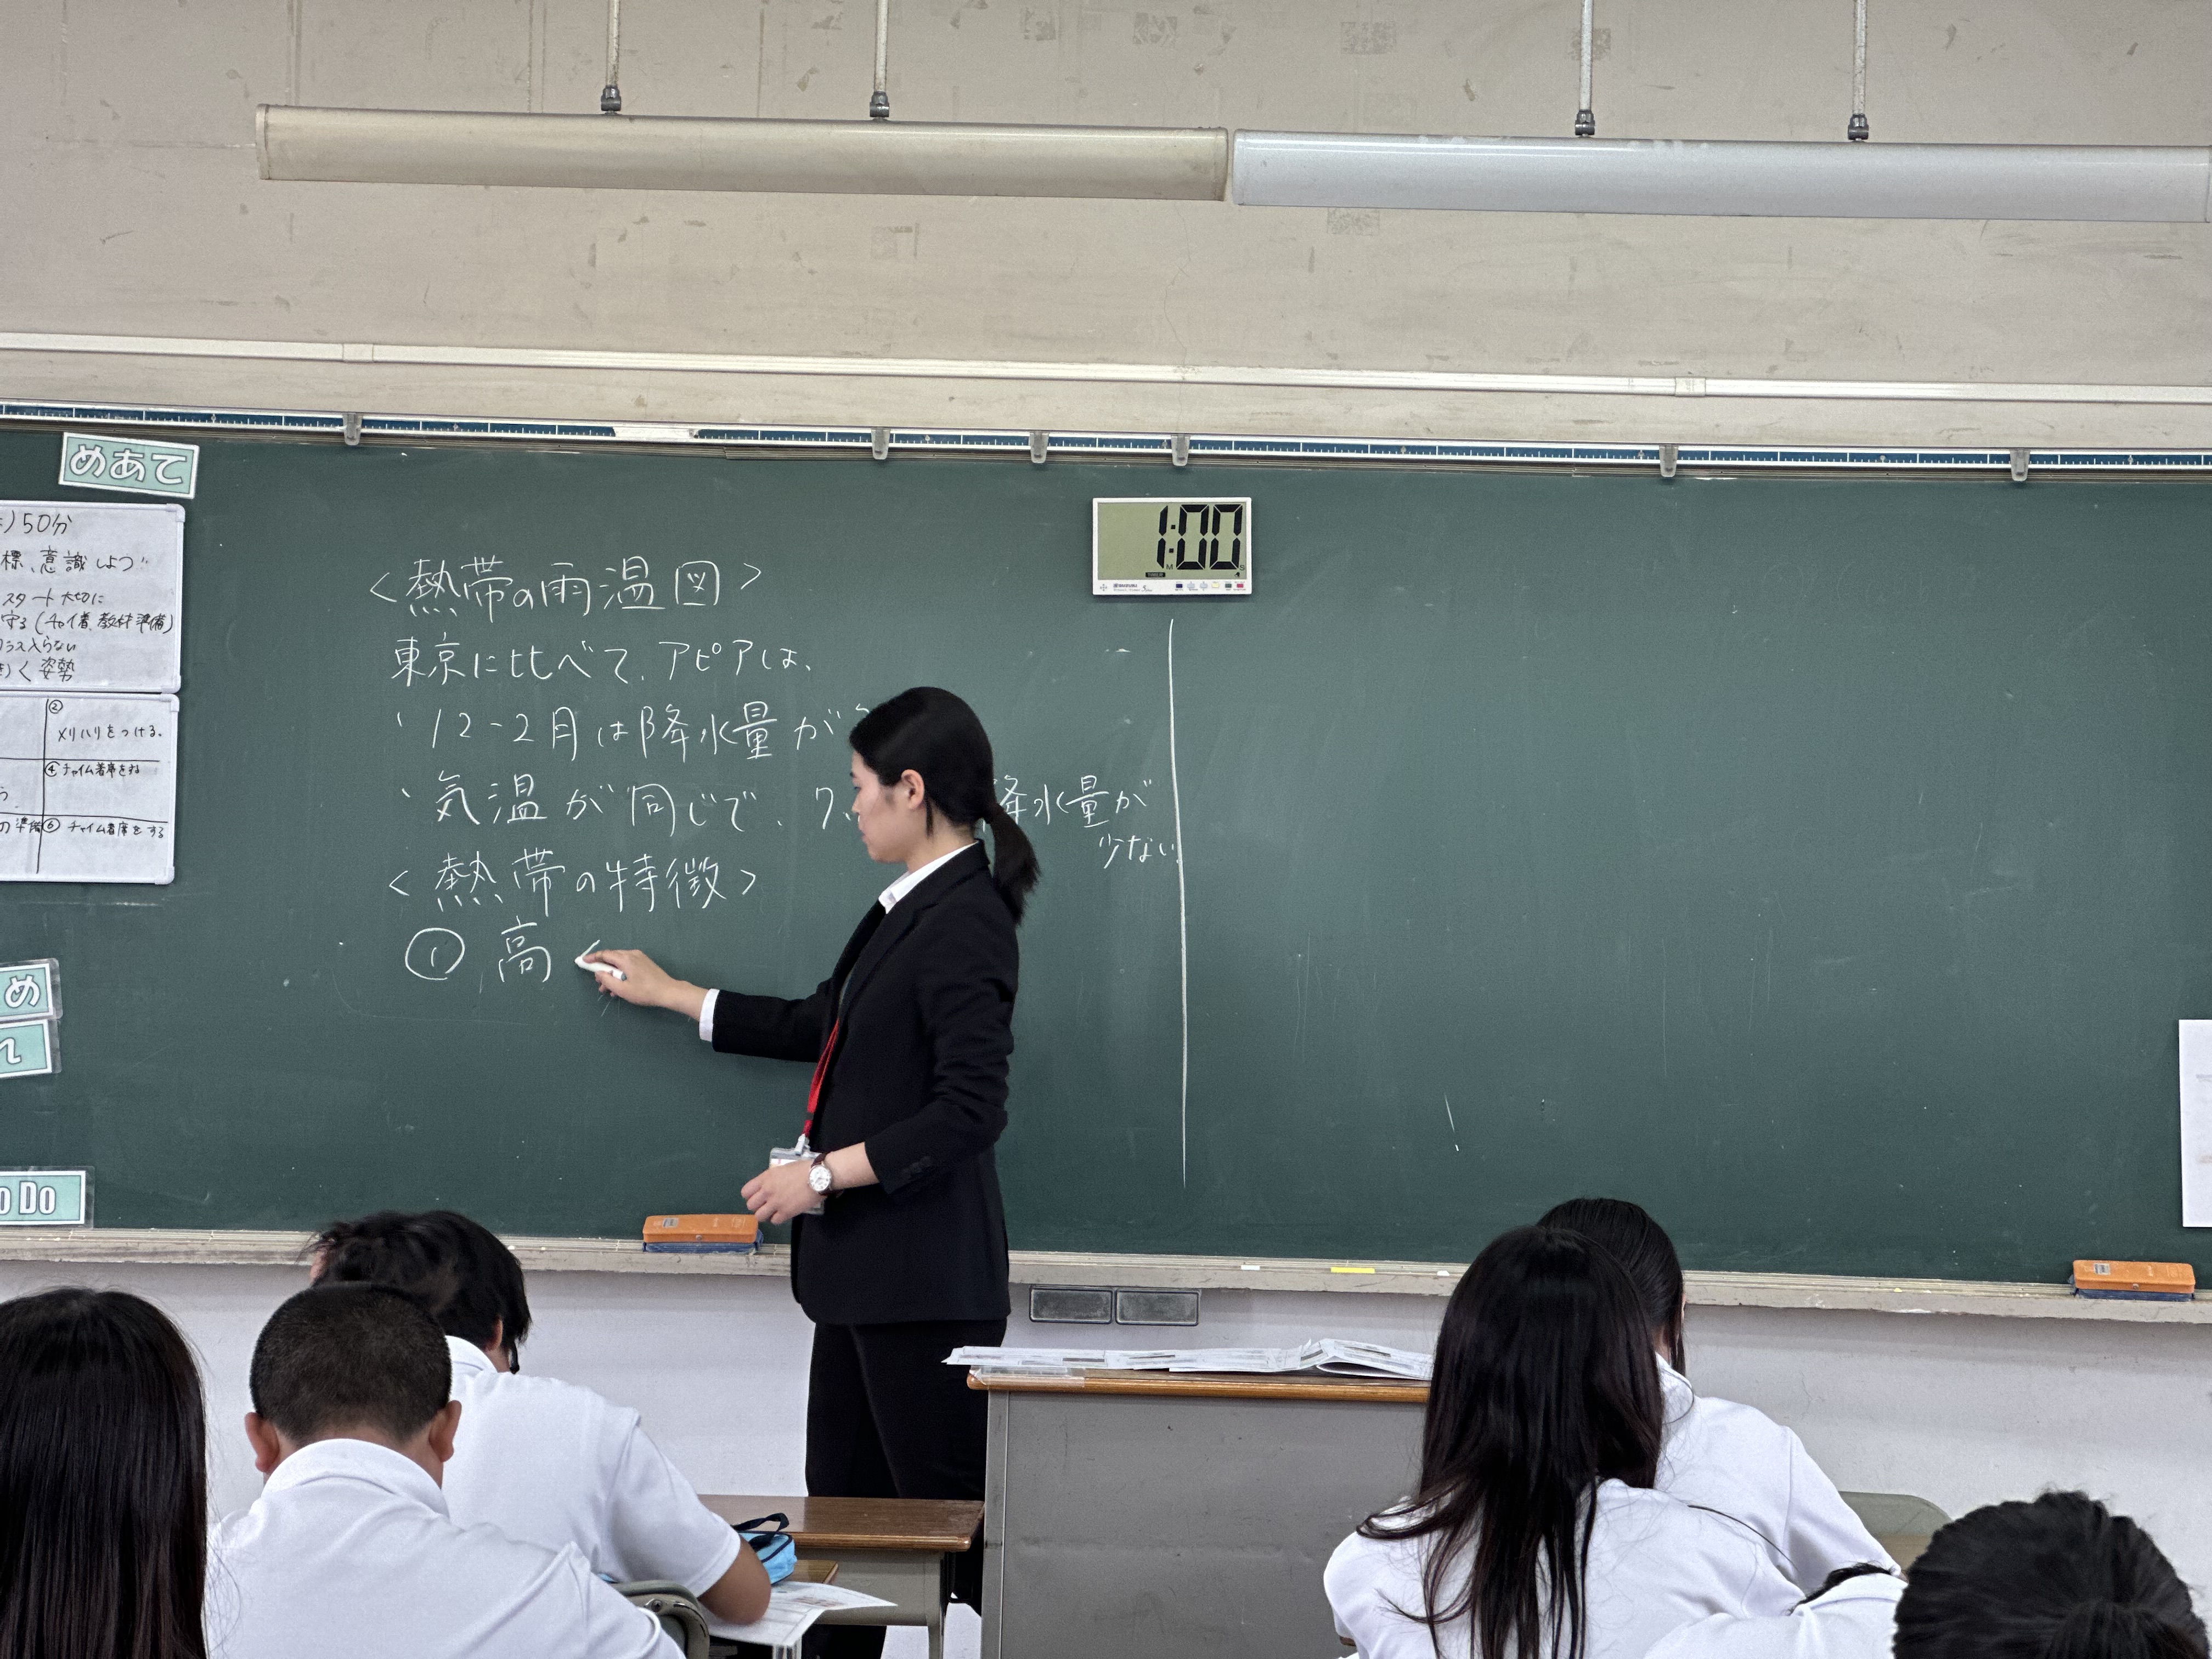 めあて
50分
標、意識しよう
スタート大切に
守る(チャイ着、教材準備)
入らない
く姿勢
②
メリハリをつける。
④ チャイム着席をする
の準備 ⑥ チャイム着席をする
め
Do
1:00
M S
<熱帯の雨温図>
東京に比べて、アピアは、
・12-2月は降水量が
・気温が同じで、7 降水量が
少ない。
<熱帯の特徴>
① 高